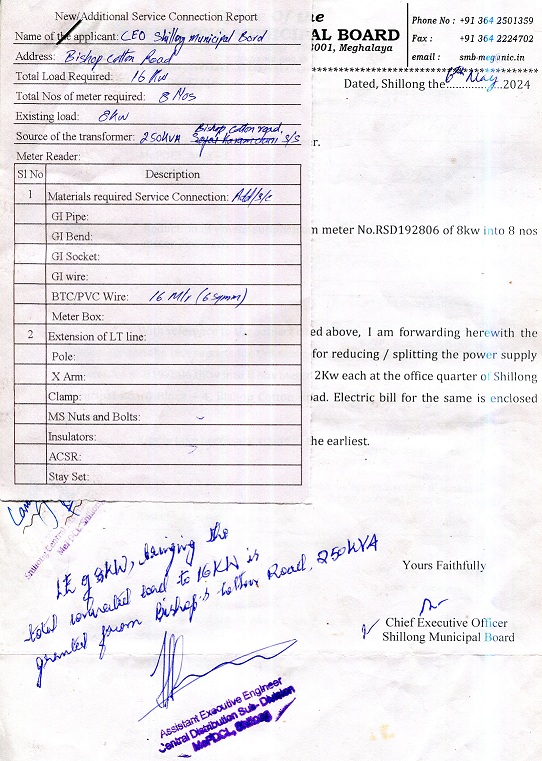 New/Additional Service Connection Report
Name of the applicant: CEO Shillong Municipal Bord
Address: Bishop Cotton Road
Total Load Required: 16 Kw
Total Nos of meter required: 8 Nos
Existing load: 8kw
Bishop Cotton road,
Source of the transformer: 250KVA S/S
Meter Reader:
Sl No Description
1 Materials required Service Connection: Addl s/c
GI Pipe:
GI Bend:
GI Socket:
GI wire:
BTC/PVC Wire: 16 Mtr (6sqmm)
Meter Box:
2 Extension of LT line:
Pole:
X Arm:
Clamp:
MS Nuts and Bolts:
Insulators:
ACSR:
Stay Set:
AL BOARD
3001, Meghalaya
Phone No : +91 364 2501359
Fax : +91 364 2224702
email : smb-meg@nic.in
Dated, Shillong the 6th May 2024
r.
m meter No.RSD192806 of 8kw into 8 nos
ed above, I am forwarding herewith the
for reducing / splitting the power supply
2Kw each at the office quarter of Shillong
oad. Electric bill for the same is enclosed
he earliest.
Yours Faithfully
Chief Executive Officer
Shillong Municipal Board
Shillong Central
MePDCL, Shillong
LE of 8KW, bringing the
total connected load to 16KW is
granted from Bishop's Cotton Road, 250KVA
Assistant Executive Engineer
Central Distribution Sub- Division
MePDCL, Shillong